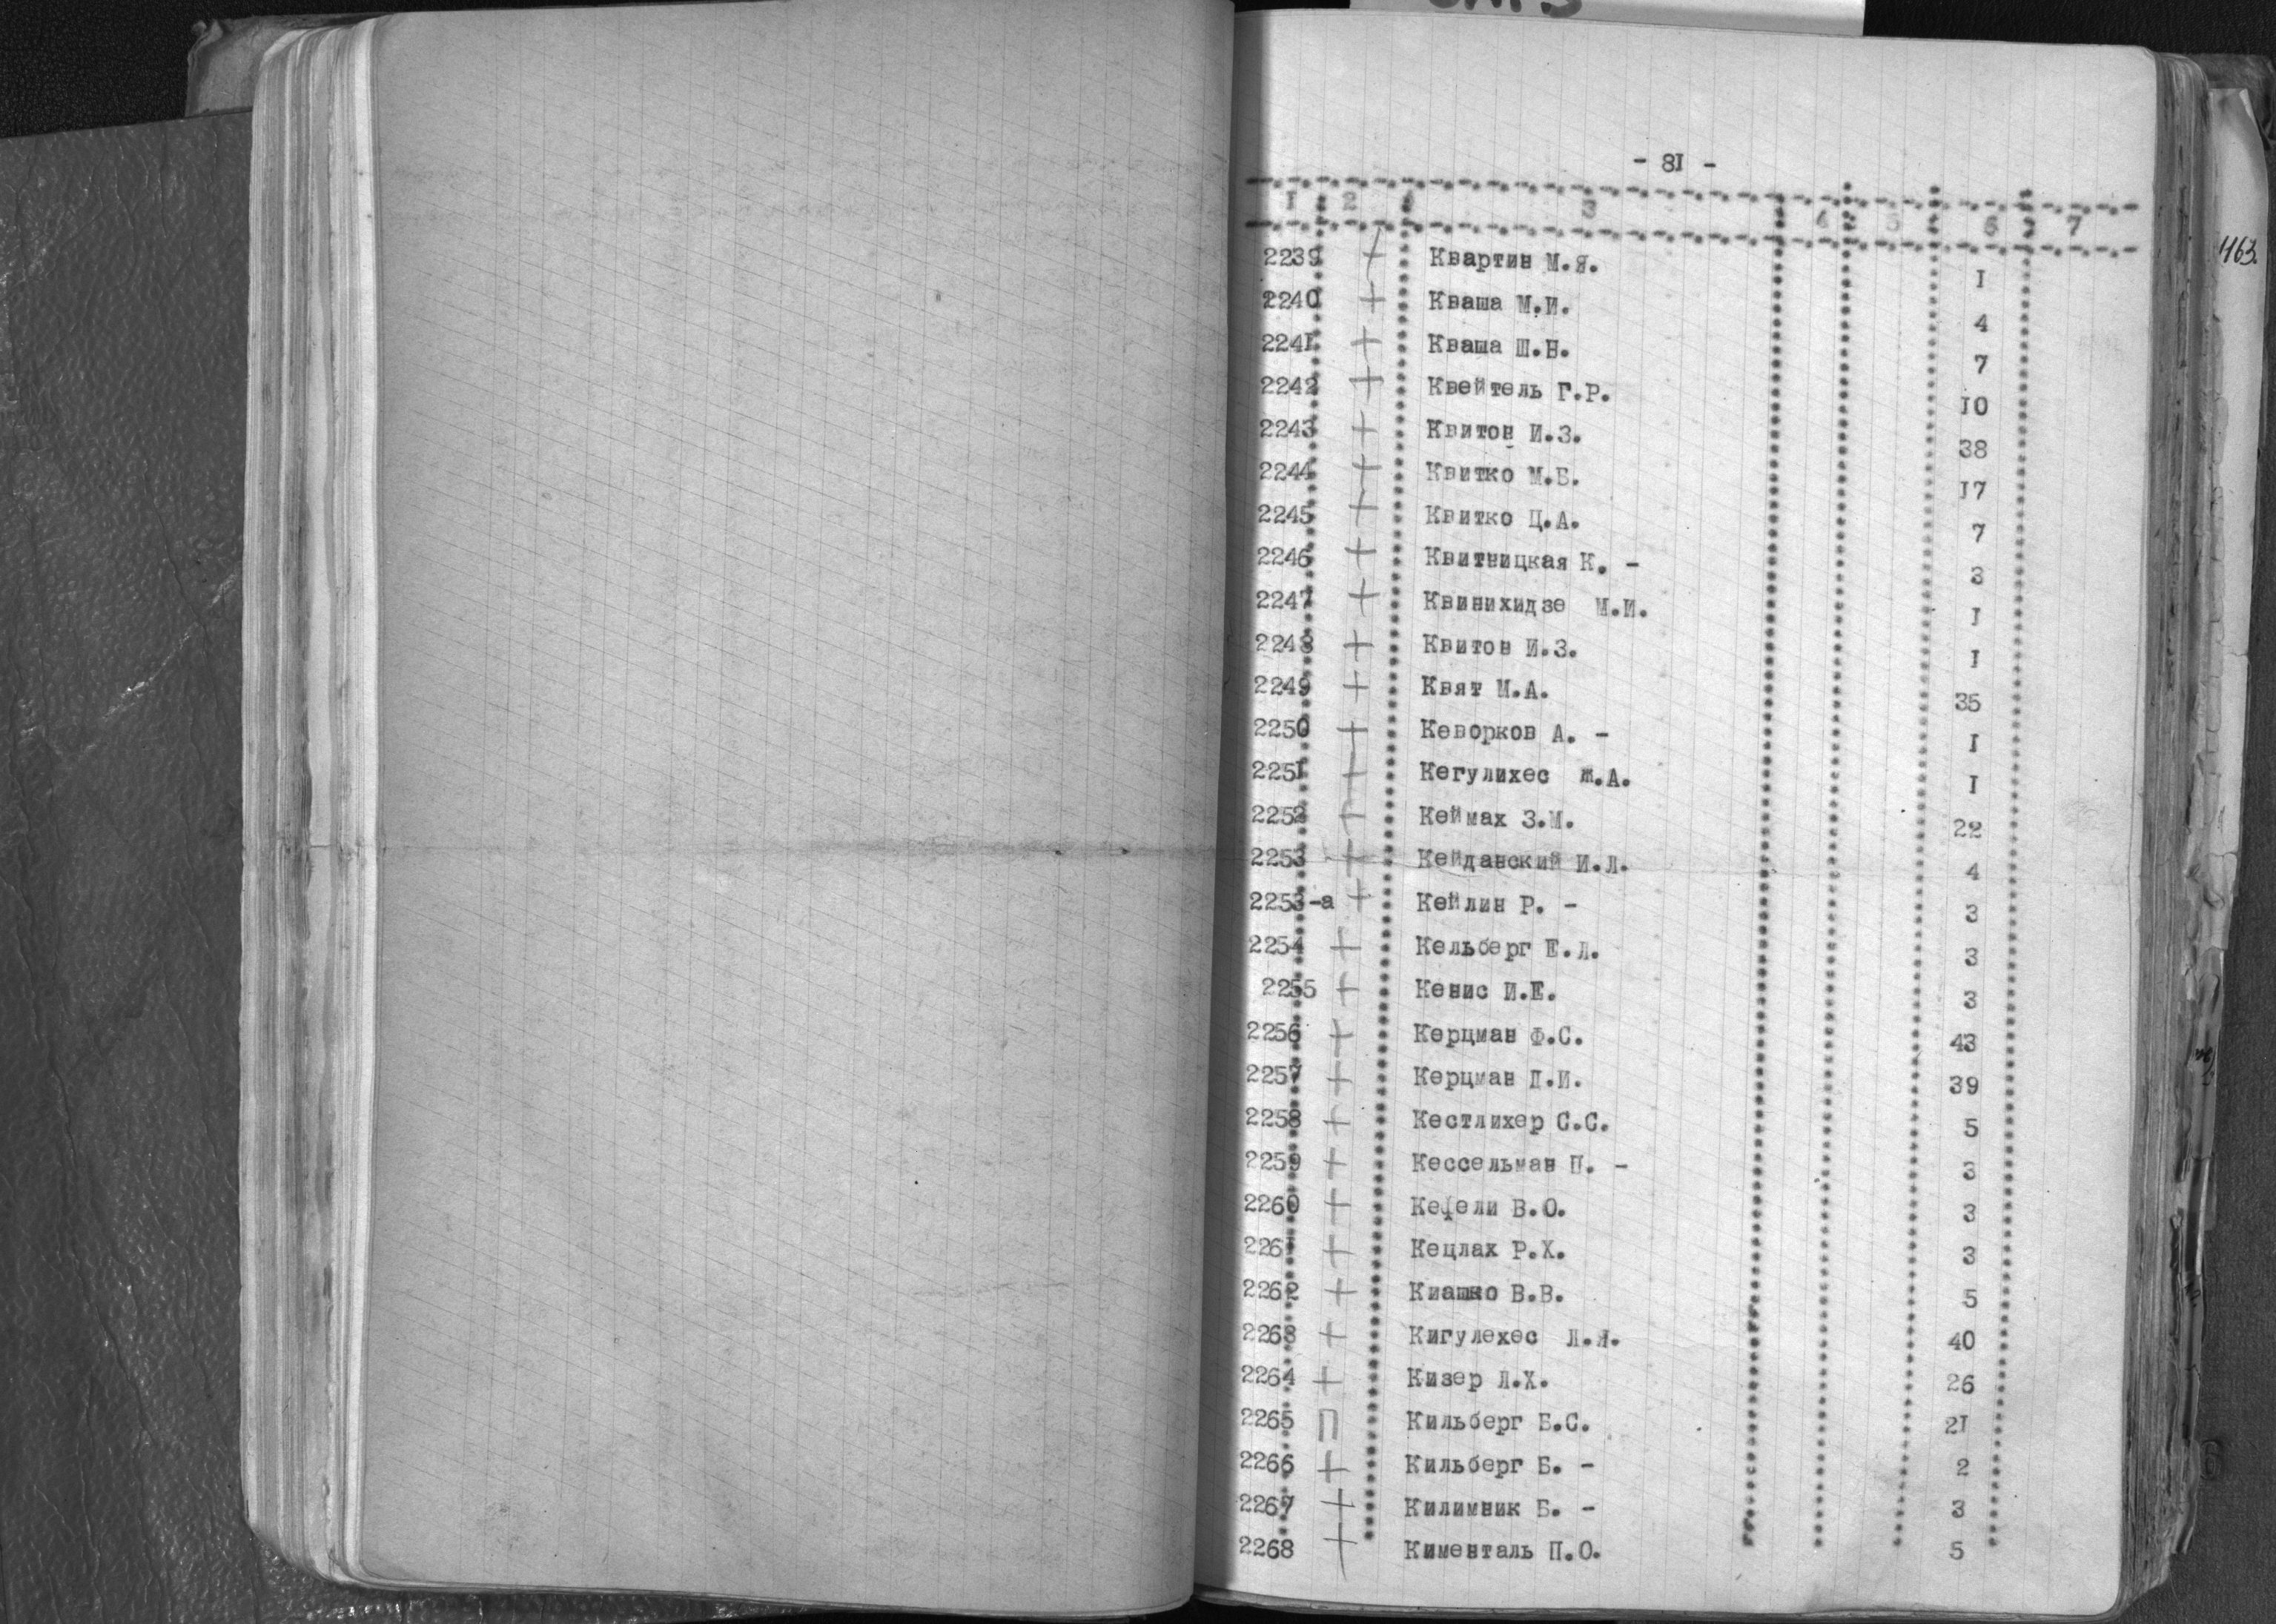 - 8I -
I 2 3 4 5 6 7
2239 + Квартин М.Я. I
2240 + Кваша М.И. 4
224I + Кваша Ш.Н. 7
2242 + Квейтель Г.Р. I0
2243 + Квитон И.З. 38
2244 + Квитко М.Б. I7
2245 + Квитко Ц.А. 7
2246 + Квитницкая К. - 3
2247 + Квинихидзе М.И. I
2248 + Квитон И.З. I
2249 + Квят М.А. 35
2250 + Кеворков А. - I
225I + Кегулихес Ж.А. I
2252 Кеймах З.М. 22
2253 + Кейданский И.Л. 4
2253-а + Кейлин Р. - 3
2254 + Кельберг Е.Л. 3
2255 + Кенис И.Е. 3
2256 + Керцман Ф.С. 43
2257 + Керцман П.И. 39
2258 + Кестлихер С.С. 5
2259 + Кессельман П. - 3
2260 + Кефели В.О. 3
226I + Кецлах Р.Х. 3
2262 + Киашко В.В. 5
2263 + Кигулехес Л.Я. 40
2264 + Кизер Л.Х. 26
2265 П Кильберг Б.С. 2I
2266 + Кильберг Б. - 2
2267 + Килимник Б. - 3
2268 + Кименталь П.О. 5
1163.